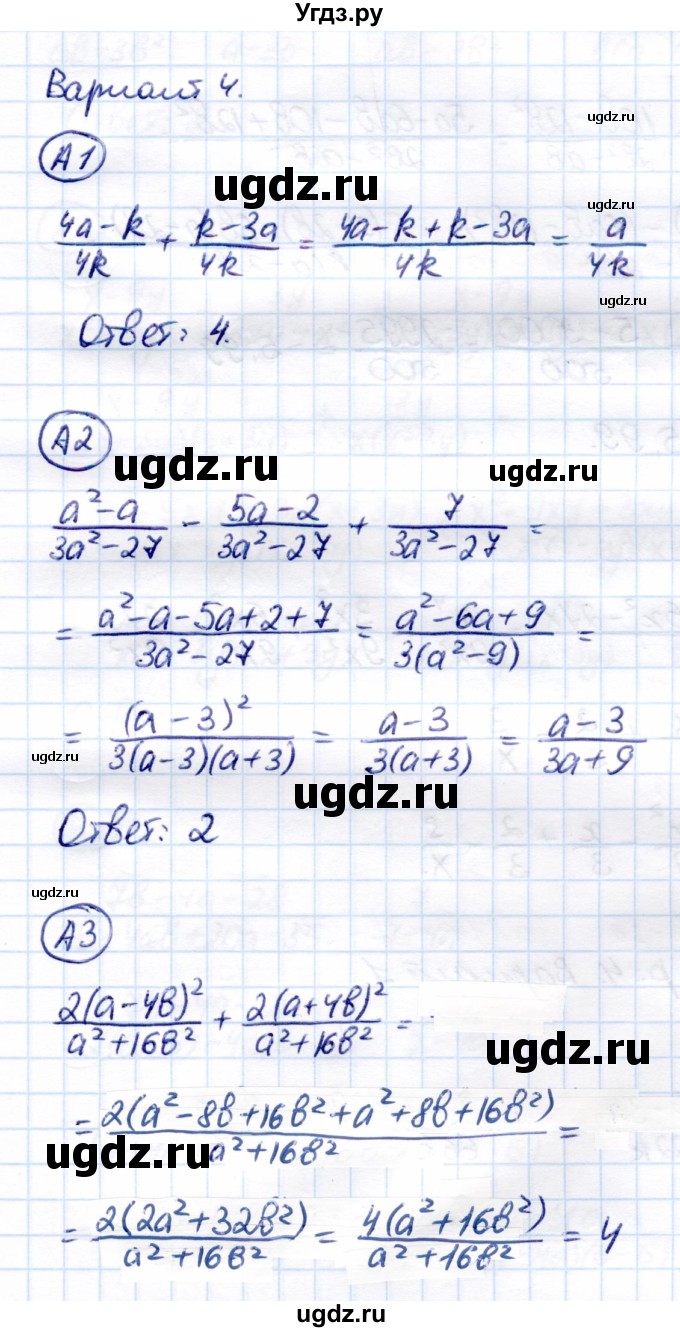 Угдз.ру
Вариант 4.
ugdz.ru
А1
ugdz.ru
(4a-k)/4k + (k-3a)/4k = (4a-k+k-3a)/4k = a/4k
ugdz.ru
Ответ: 4.
А2
ugdz.ru
ugdz.ru
(a²-a)/(3a²-27) - (5a-2)/(3a²-27) + 7/(3a²-27) =
= (a²-a-5a+2+7)/(3a²-27) = (a²-6a+9)/(3(a²-9)) =
= (a-3)²/(3(a-3)(a+3)) = (a-3)/(3(a+3)) = (a-3)/(3a+9)
ugdz.ru
ugdz.ru
Ответ: 2
ugdz.ru
А3
2(a-4в)²/(a²+16в²) + 2(a+4в)²/(a²+16в²) =
ugdz.ru
= 2(a²-8в+16в²+a²+8в+16в²)/(a²+16в²) =
ugdz.ru
= 2(2a²+32в²)/(a²+16в²) = 4(a²+16в²)/(a²+16в²) = 4
ugdz.ru
ugdz.ru